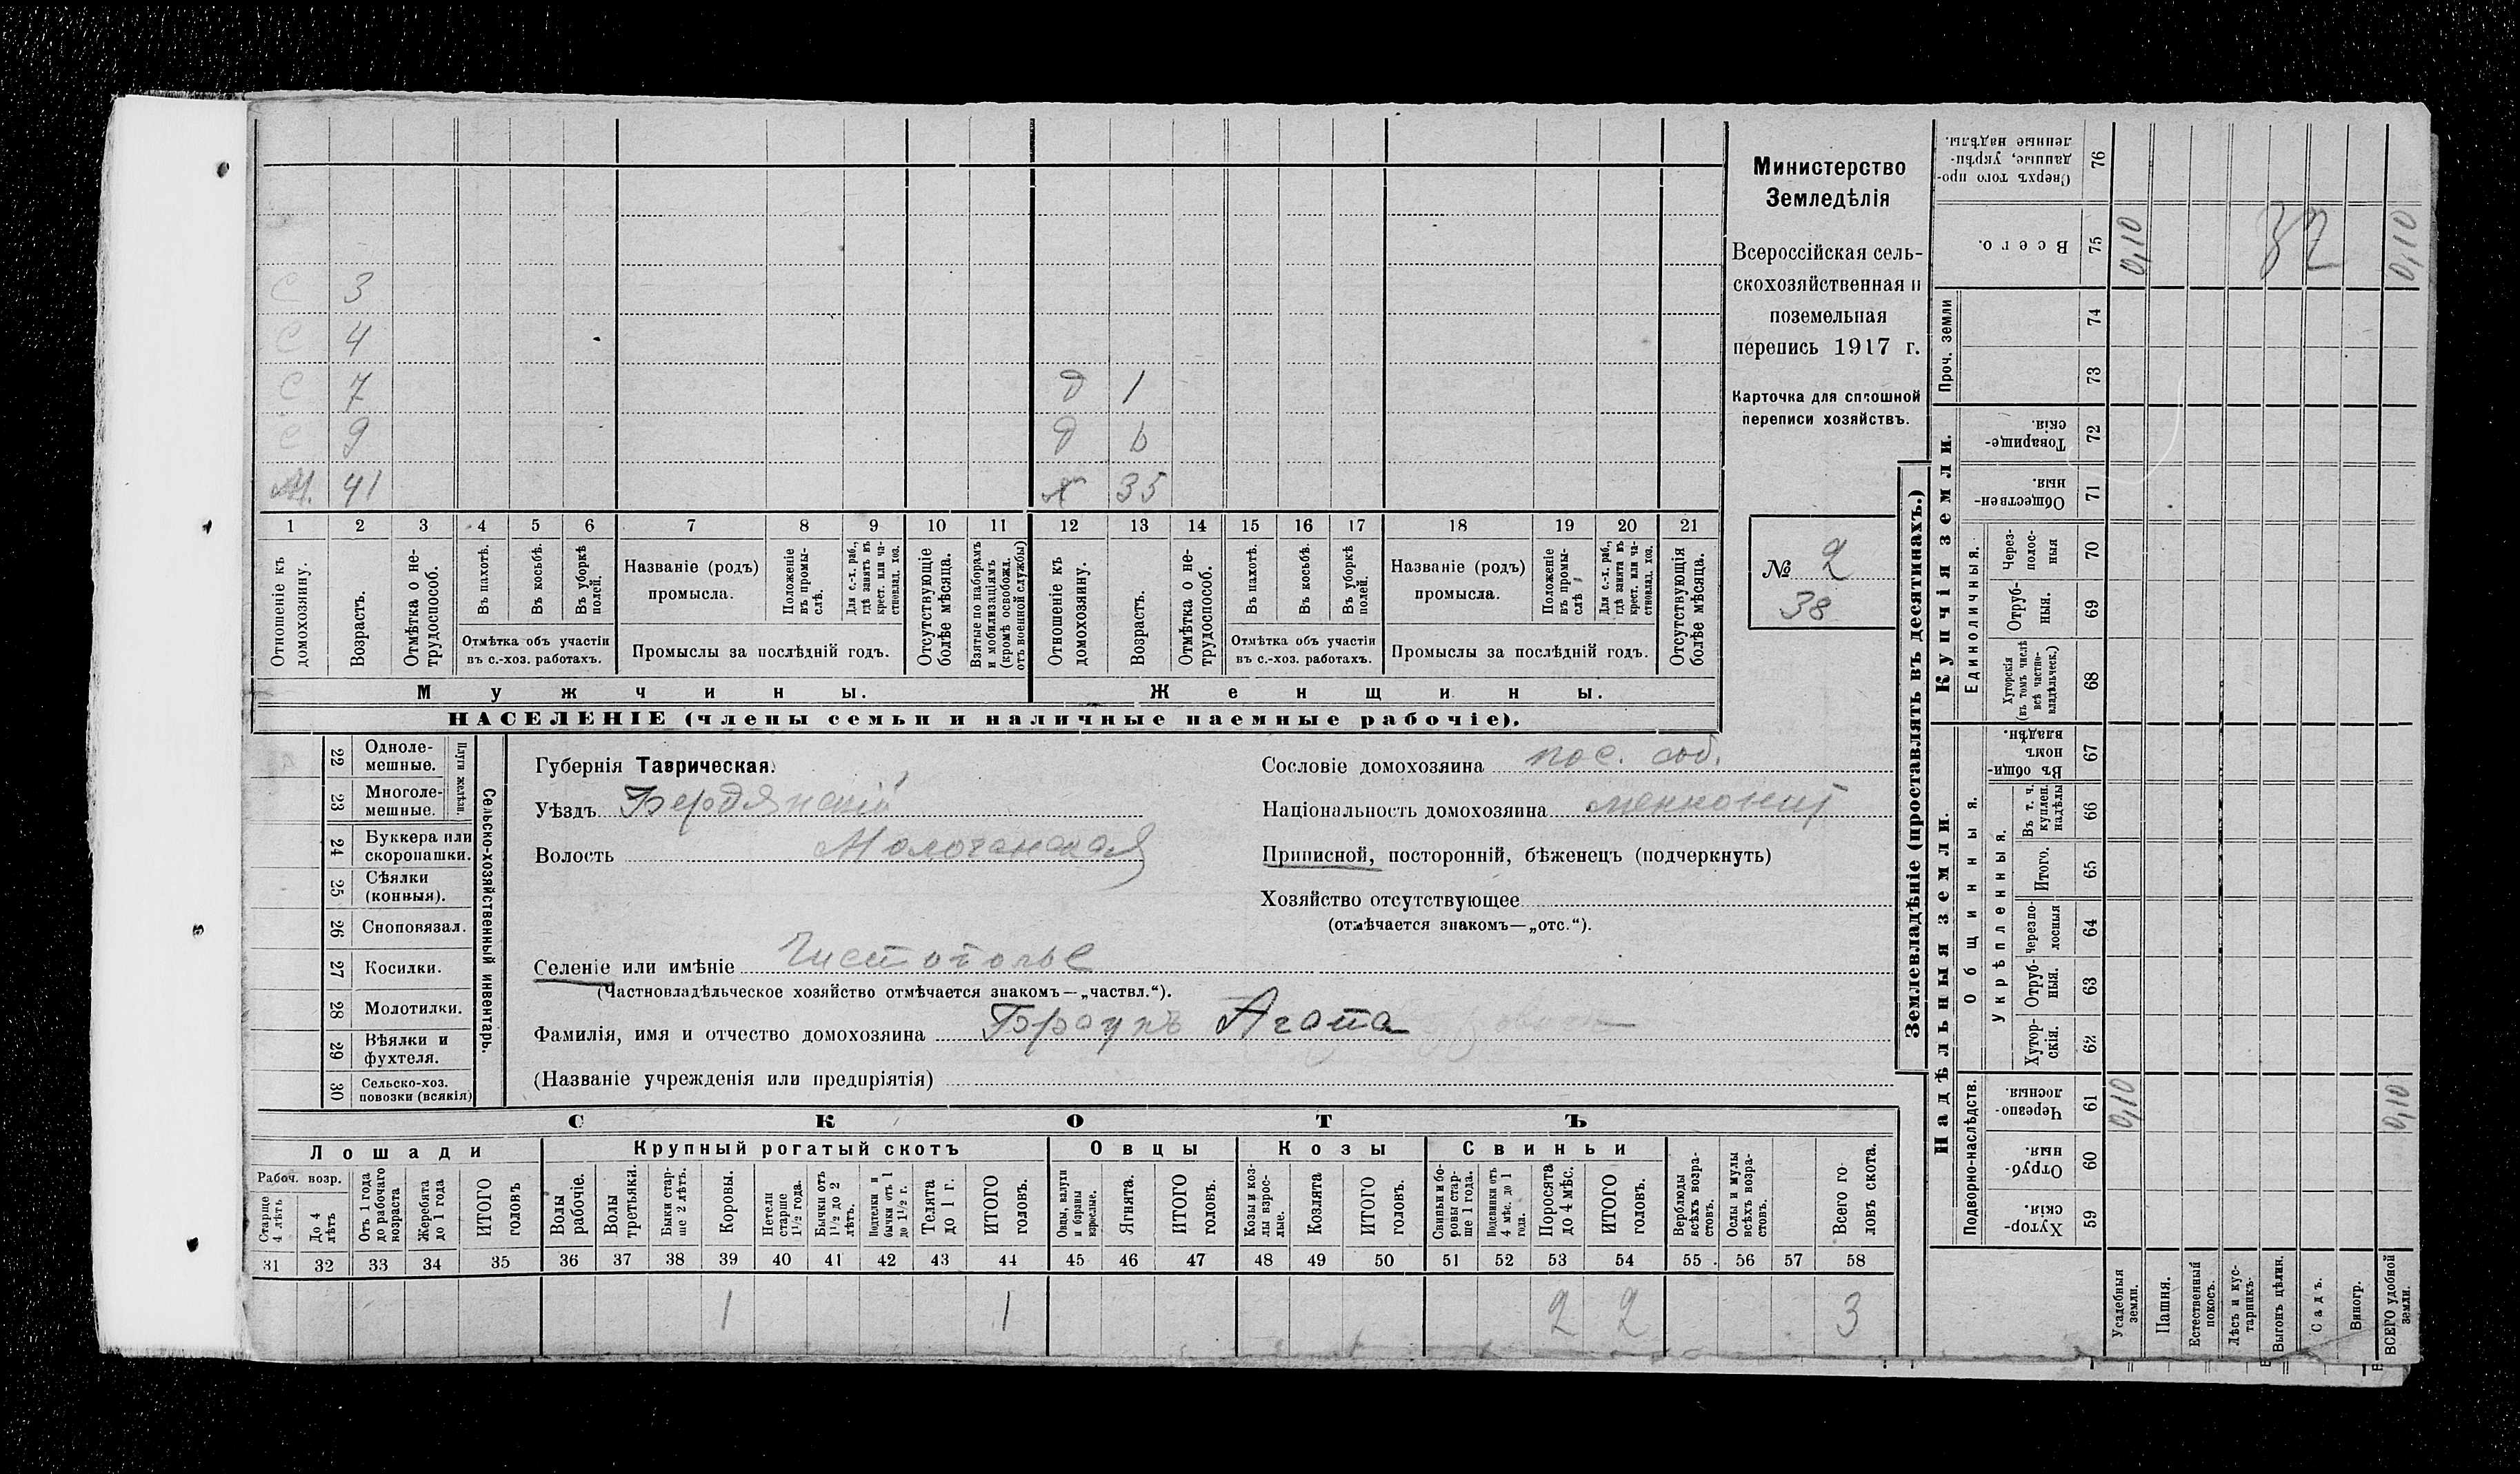 Министерство
Земледѣлія
Всероссійская сель-
скохозяйственная и
поземельная
перепись 1917 г.
Карточка для сплошной
переписи хозяйствъ.
№ 2
38
С 3
С 4
С 7 д 1
С 9 д 6
М. 41 ж 35
1 2 3 4 5 6 7 8 9 10 11 12 13 14 15 16 17 18 19 20 21
Отношеніе къ домохозяину.
Возрастъ.
Отмѣтка о не-трудоспособ.
Въ пахотѣ.
Въ косьбѣ.
Въ уборкѣ полей.
Отмѣтка объ участіи
въ с.-хоз. работахъ.
Названіе (родъ)
промысла.
Положеніе въ промы-слѣ.
Для с.-х. раб., гдѣ занятъ въ крест. или ча-стновлад. хоз.
Промыслы за послѣдній годъ.
Отсутствующіе болѣе мѣсяца.
Взятые по наборамъ и мобилизаціямъ (кромѣ освобожд. отъ военной службы)
Отношеніе къ домохозяину.
Возрастъ.
Отмѣтка о не-трудоспособ.
Въ пахотѣ.
Въ косьбѣ.
Въ уборкѣ полей.
Отмѣтка объ участіи
въ с.-хоз. работахъ.
Названіе (родъ)
промысла.
Положеніе въ промы-слѣ
Для с.-х. раб., гдѣ занята въ крест. или ча-стновлад. хоз.
Промыслы за послѣдній годъ.
Отсутствующія болѣе мѣсяца.
Мужчины. Женщины.
НАСЕЛЕНІЕ (члены семьи и наличные наемные рабочіе).
22 Одноле-мешные.
23 Многоле-мешные.
Плуги желѣзн.
24 Буккера или скоропашки.
25 Сѣялки (конныя).
26 Сноповязал.
27 Косилки.
28 Молотилки.
29 Вѣялки и фухтеля.
30 Сельско-хоз. повозки (всякія)
Сельско-хозяйственный инвентарь.
Губернія Таврическая.
Уѣздъ Бердянскій
Волость Молочанская
Селеніе или имѣніе Чистополье
(Частновладѣльческое хозяйство отмѣчается знакомъ—„частвл.“).
Фамилія, имя и отчество домохозяина Браунъ Агата
(Названіе учрежденія или предпріятія)
Сословіе домохозяина пос. соб.
Національность домохозяина меннонит
Приписной, посторонній, бѣженецъ (подчеркнуть)
Хозяйство отсутствующее
(отмѣчается знакомъ—„отс.“).
СКОТЪ
Лошади Крупный рогатый скотъ Овцы Козы Свиньи
Рабоч. возр.
Старше 4 лѣтъ
До 4 лѣтъ
Отъ 1 года до рабочаго возраста
Жеребята до 1 года
ИТОГО головъ
Волы рабочіе.
Волы третьяки.
Быки стар-ше 2 лѣтъ.
Коровы.
Нетели старше 1½ года.
Бычки отъ 1½ до 2 лѣтъ.
Подтелки и бычки отъ 1 до 1½ г.
Телята до 1 г.
ИТОГО головъ.
Овцы, валухи и бараны взрослые.
Ягнята.
ИТОГО головъ.
Козы и коз-лы взрос-лые.
Козлята
ИТОГО головъ.
Свиньи и бо-ровы стар-ше 1 года.
Подсвинки отъ 4 мѣс. до 1 года.
Поросята до 4 мѣс.
ИТОГО головъ.
Верблюды всѣхъ возра-стовъ.
Ослы и мулы всѣхъ возра-стовъ.
Всего го-ловъ скота.
31 32 33 34 35 36 37 38 39 40 41 42 43 44 45 46 47 48 49 50 51 52 53 54 55 56 57 58
1 1 2 2 3
Землевладѣніе (проставлять въ десятинахъ.)
Надѣльныя земли. Купчія земли. Проч. земли
Сверхъ того про-данные, укрѣп-ленные надѣлы. 76
Всего. 75 0,10 32 0,10
74
73
Товарище-скія. 72
Обществен-ныя. 71
Единоличныя.
Через-полос-ныя 70
Отруб-ныя. 69
Хуторскія (въ томъ числѣ всѣ частно-владѣльческ.) 68
Общинныя.
Въ общи-номъ владѣн. 67
Укрѣпленныя.
Въ т. ч. куплен. надѣлы 66
Итого. 65
Черезпо-лосныя 64
Отруб-ныя. 63
Хутор-скія. 62
Подворно-наслѣдств.
Черезпо-лосныя. 61 0,10 0,10
Отруб-ныя. 60
Хутор-скія. 59
Усадебныя земли.
Пашня.
Естественный покосъ.
Лѣсъ и кус-тарникъ.
Выгонъ цѣлин.
Садъ.
Виногр.
ВСЕГО удобной земли.